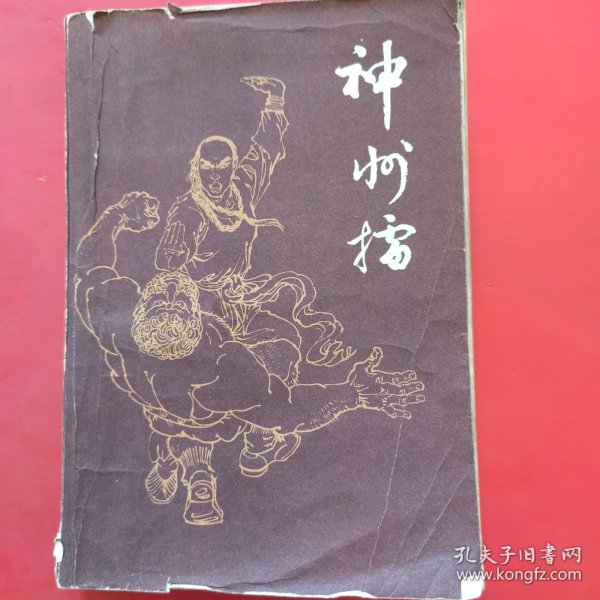 神州擂
孔夫子旧書网
www.kongfz.com